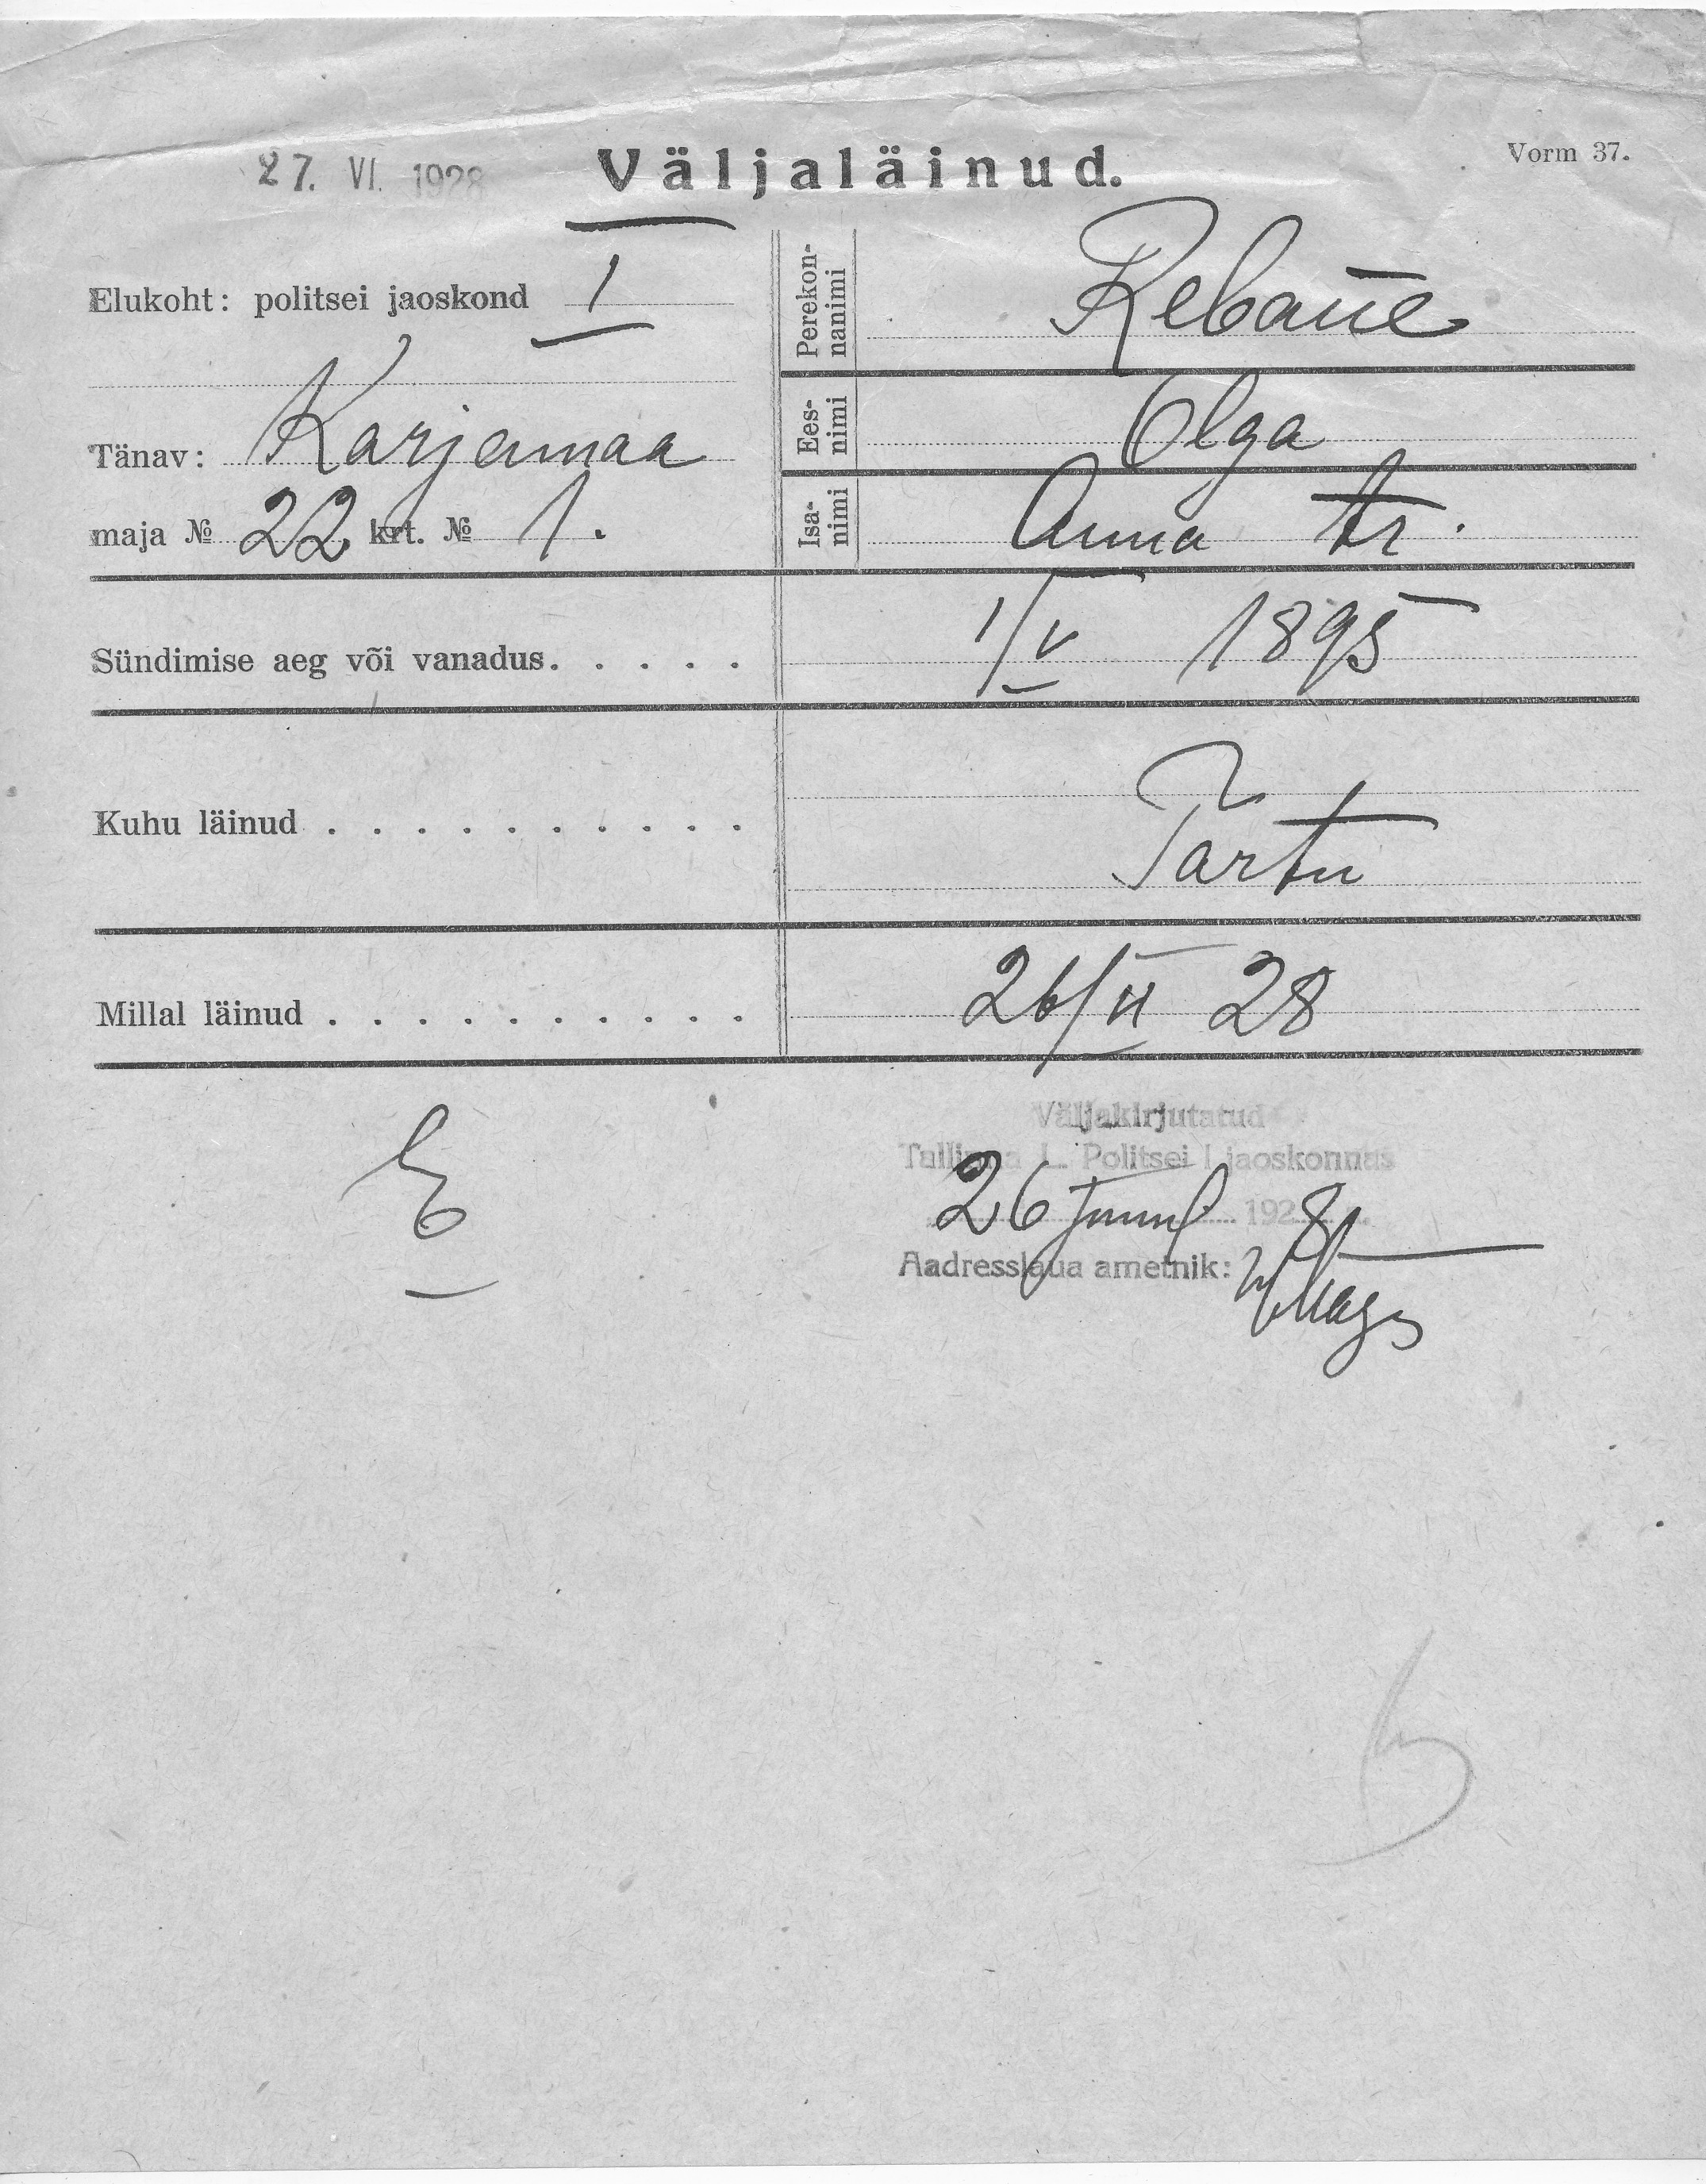 27. VI. 1928
Väljaläinud.
Vorm 37.
Elukoht: politsei jaoskond I
Tänav: Karjamaa
maja № 22 krt. № 1.
Perekon-
nanimi
Rebane
Ees-
nimi
Olga
Isa-
nimi
Anna tr.
Sündimise aeg või vanadus. . . . . 1/V 1895
Kuhu läinud . . . . . . . . . . Tartu
Millal läinud . . . . . . . . . . 26/II 28
E
Väljakirjutatud
Tallinna L. Politsei I jaoskonnas
26 Juunil 1928
Aadresslaua ametnik: